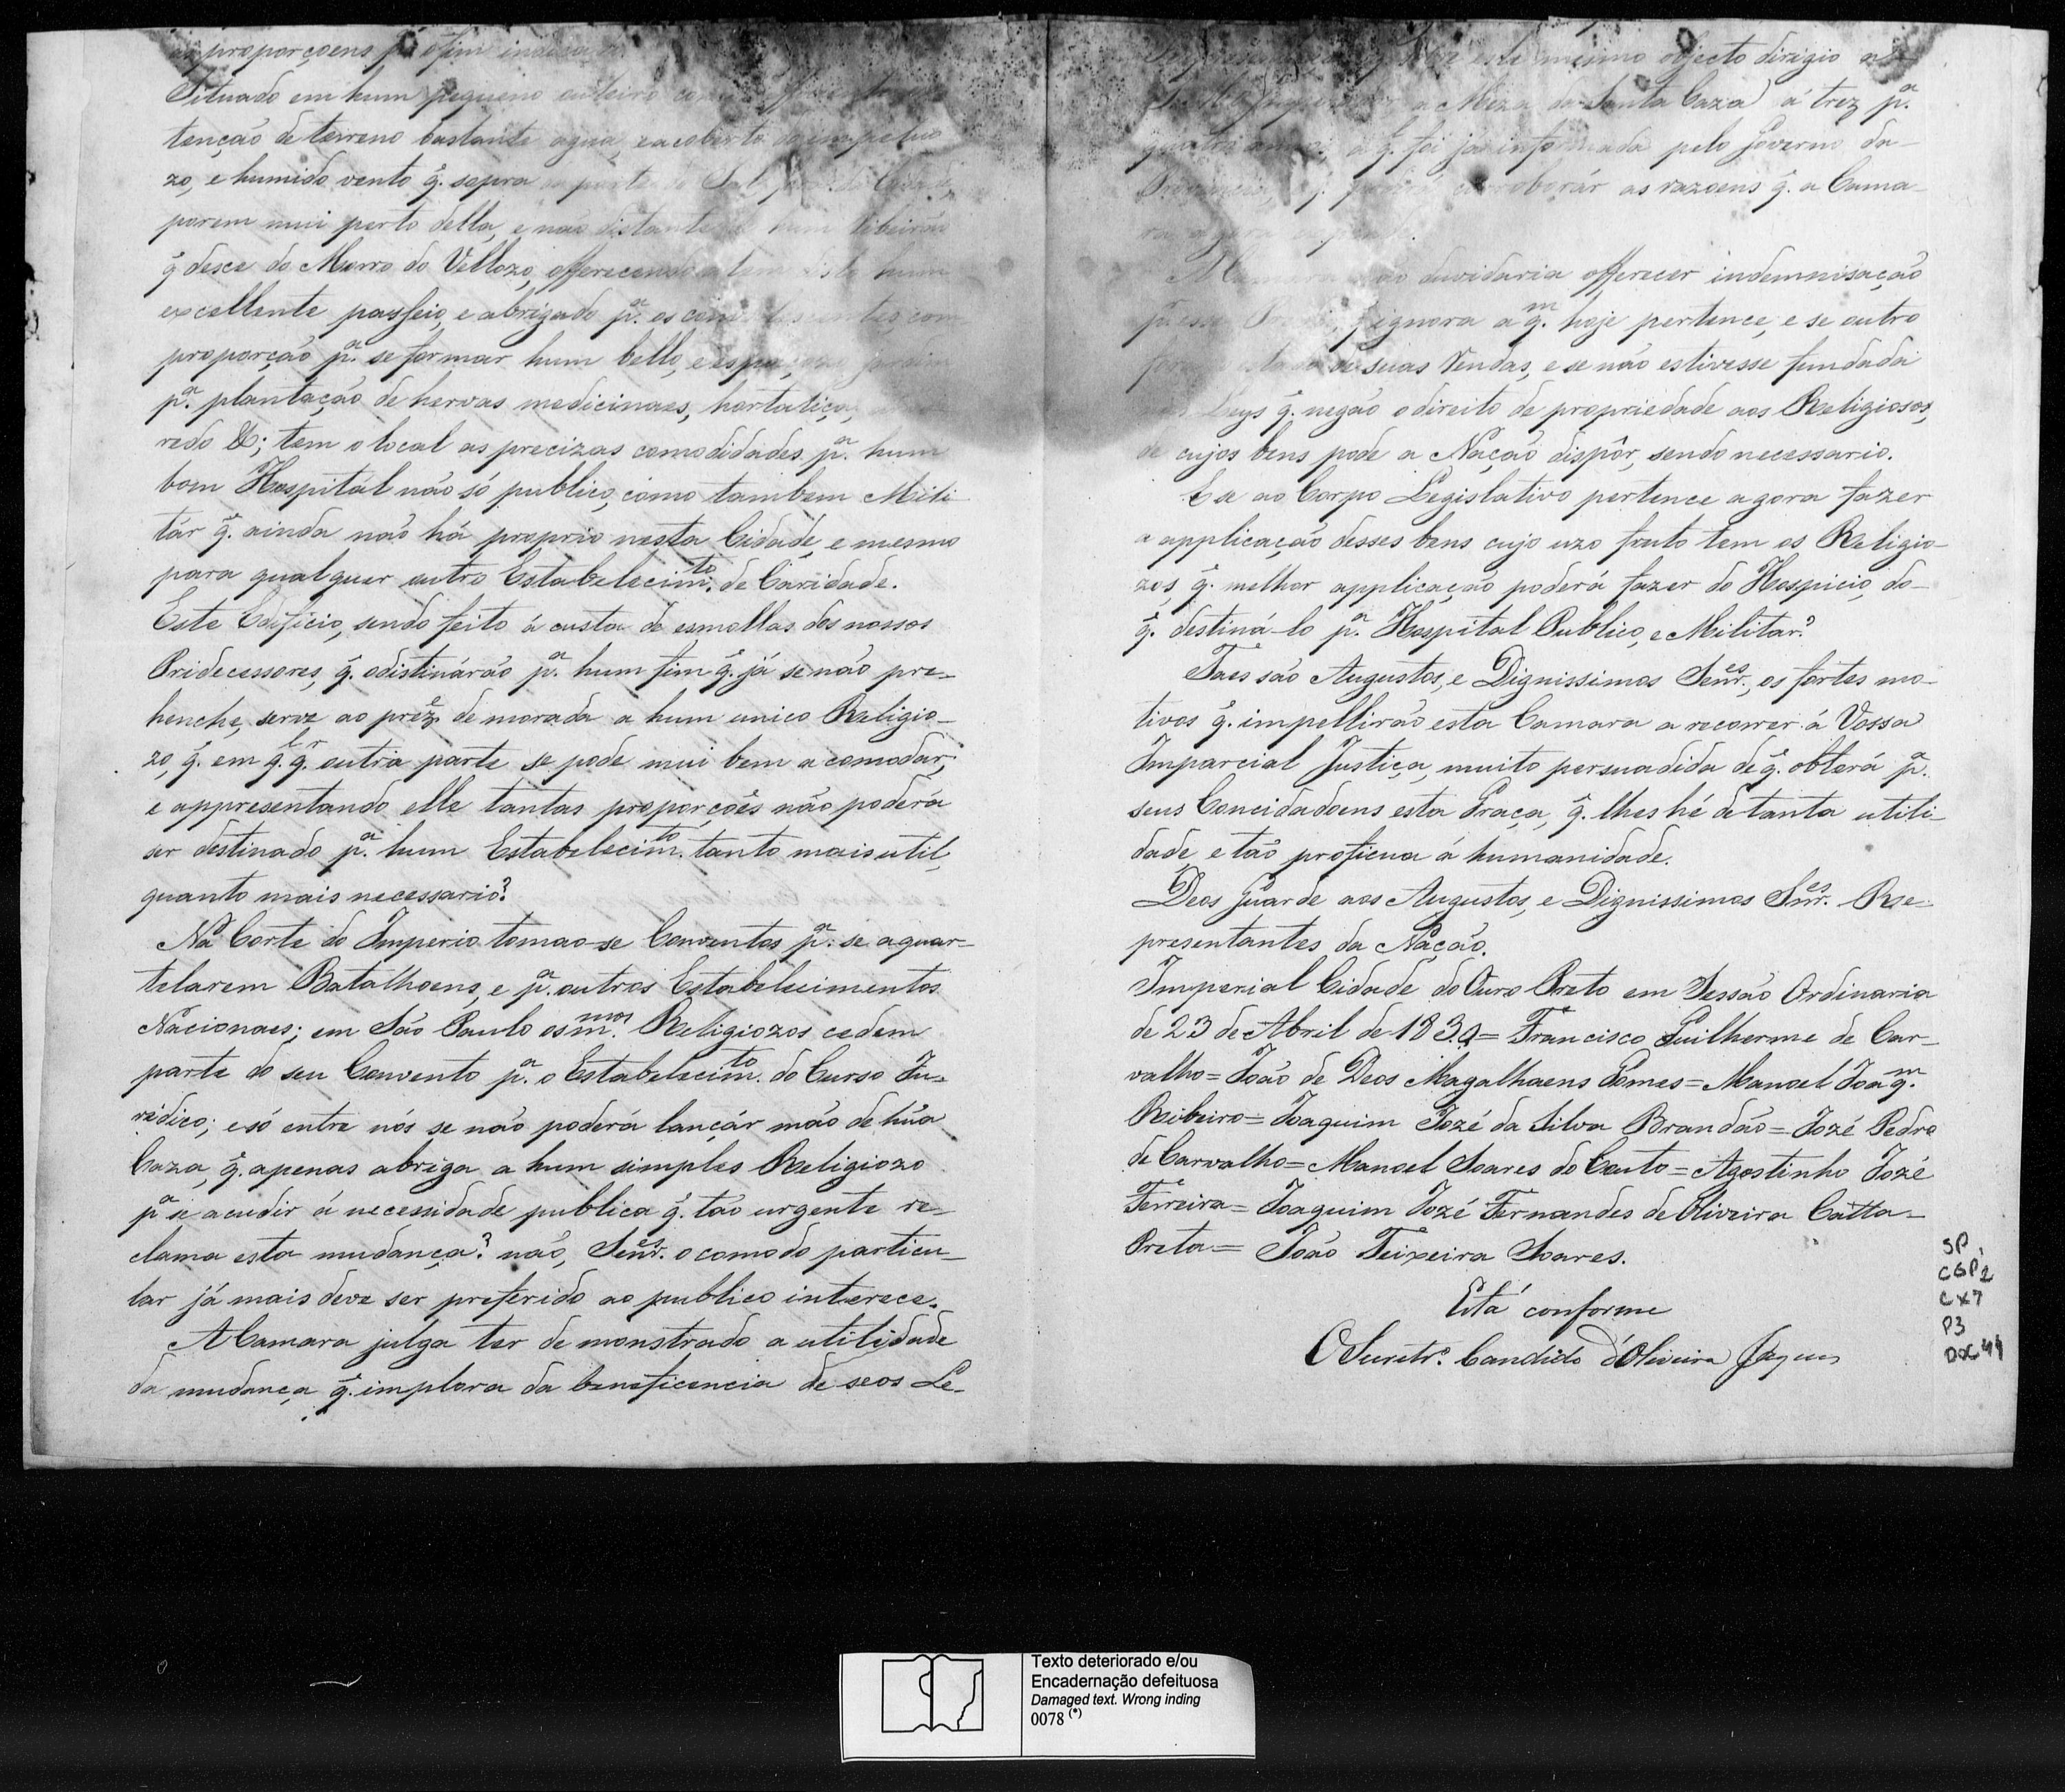 proporçoens pª o fim indicado.
Situado em hum pequeno outeiro com
tenção de terreno bastante agua, e acoberto do impetuo
zo, e humido vento q̃. sopra da parte do Sul
porem mui perto della, e não distante de hum ribeirão
q̃ desce do Morro do Vellozo, offerecendo alem disto hum
excellente passeio, e abrigado pª. os com
proporção pª. se formar hum bello, e espaçozo jardim
pª. plantação de hervas medicinaes, hortaliça,
redo &; tem o local as precizas comodidades pª. hum
bom Hospitál não só publico, como tambem Mili-
tár q̃. ainda não há proprio nesta Cidade, e mesmo
para qualquer outro Estabelecimto. de Caridade.
Este Edificio, sendo feito á custa de esmollas dos nossos
Pridecessores, q̃. o distinárão pª. hum fim q̃. já se não pre-
henche, serve ao prẽz. de morada a hum unico Religio-
zo, q̃. em q.lq.r outra parte se pode mui bem acomodar;
e appresentando elle tantas proporções não poderá
ser destinado pª. hum Estabelecimto. tanto mais util,
quanto mais necessario?
Na Corte do Imperio tomao-se Conventos pª. se aquar-
telarem Batalhoens, e pª. outros Estabelecimentos
Nacionaes; em São Paulo os mmos. Religiozos cedem
parte do seu Convento pª. o Estabelecimto. do Curso Ju-
ridico; e só entre nós se não poderá lançár mão de hũa
Caza, q̃. apenas abriga a hum simples Religiozo
pª se acudir á necessidade publica q̃. tão urgente re-
clama esta mudança? não, Senres. o comodo particu-
lar já mais deve ser preferido ao publico interece.
A Camara julga ter demonstrado a utilidade
da mudança q̃. implora da beneficencia de seos Le-
este mesmo objecto dirigio
a Meza da Santa Caza) á trez pª.
quatro annos, a q̃. foi já informada pelo Governo da
Provincia, corroborár as razoens q̃. a Cama-
ra agora expende.
A Camara não duvidaria offerecer indemnisação
ignora a q.m hoje pertence, e se outro
estado de suas Rendas, e se não estivesse fundada
Leys q̃. negão o direito de propriedade aos Religiosos,
de cujos bens pode a Nação dispôr, sendo necessario.
E se ao Corpo Legislativo pertence agora fazer
a applicação desses bens cujo uzo fruto tem os Religio-
zos, q̃. melhor applicação poderá fazer do Hospicio, do-
q̃. destiná-lo pª. Hospital Publico, e Militar?
Taes são Augustos, e Dignissimos Senres., os fortes mo-
tivos q̃. impellirão esta Camara a recorrer á Vossa
Imparcial Justiça, muito persuadida de q̃. obterá pª.
seus Concidadoens esta Graça, q̃. lhes hé de tanta utili-
dade, e tão proficua á humanidade.
Deos Guarde aos Augustos, e Dignissimos Snres. Re-
presentantes da Nação.
Imperial Cidade do Ouro Preto em Sessão Ordinaria
de 23 de Abril de 1830= Francisco Guilherme de Car-
valho= João de Deos Magalhaens Gomes= Manoel Joaq.m
Ribeiro= Joaquim José da Silva Brandão= Jozé Pedro
de Carvalho= Manoel Soares do Couto= Agostinho Jozé
Ferreira= Joaquim Jozé Fernandes de Oliveira Catta-
Preta= João Teixeira Soares.
Está conforme
O Secretro. Candido d'Oliveira Jaques
SP
CGP2
CX7
P3
DOC 44
Texto deteriorado e/ou
Encadernação defeituosa
Damaged text. Wrong inding
0078 (*)